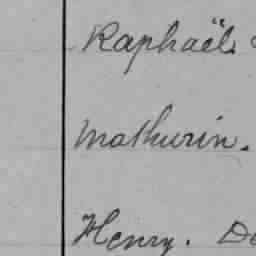 Raphaël.
Mathurin.
Henry. De